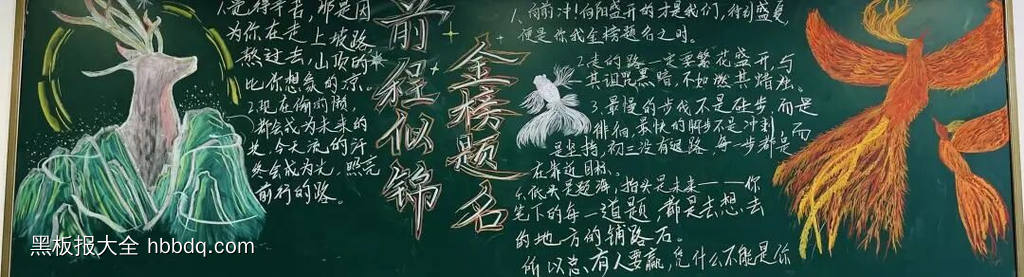 1.觉得辛苦，那是因
为你在走上坡路
熬过去，山顶的
比你想象的凉。
2.现在偷的懒，
都会成为未来的
今天流的汗
终会成为光，照亮
前行的路。
前程似锦
金榜题名
1、向前冲！向阳盛开的才是我们，待到盛夏
便是你我金榜题名之时。
2.走的路一定要繁花盛开，与
其诅咒黑暗，不如燃其烛。
3.最慢的步伐不是跬步，而是
徘徊，最快的脚步不是冲刺，而
是坚持，初三没有退路，每一步都是
在靠近目标。
4.低头是题海，抬头是未来——你
笔下的每一道题，都是去想去
的地方的铺路石。
所以总有人要赢，凭什么不能是你
黑板报大全 hbbdq.com